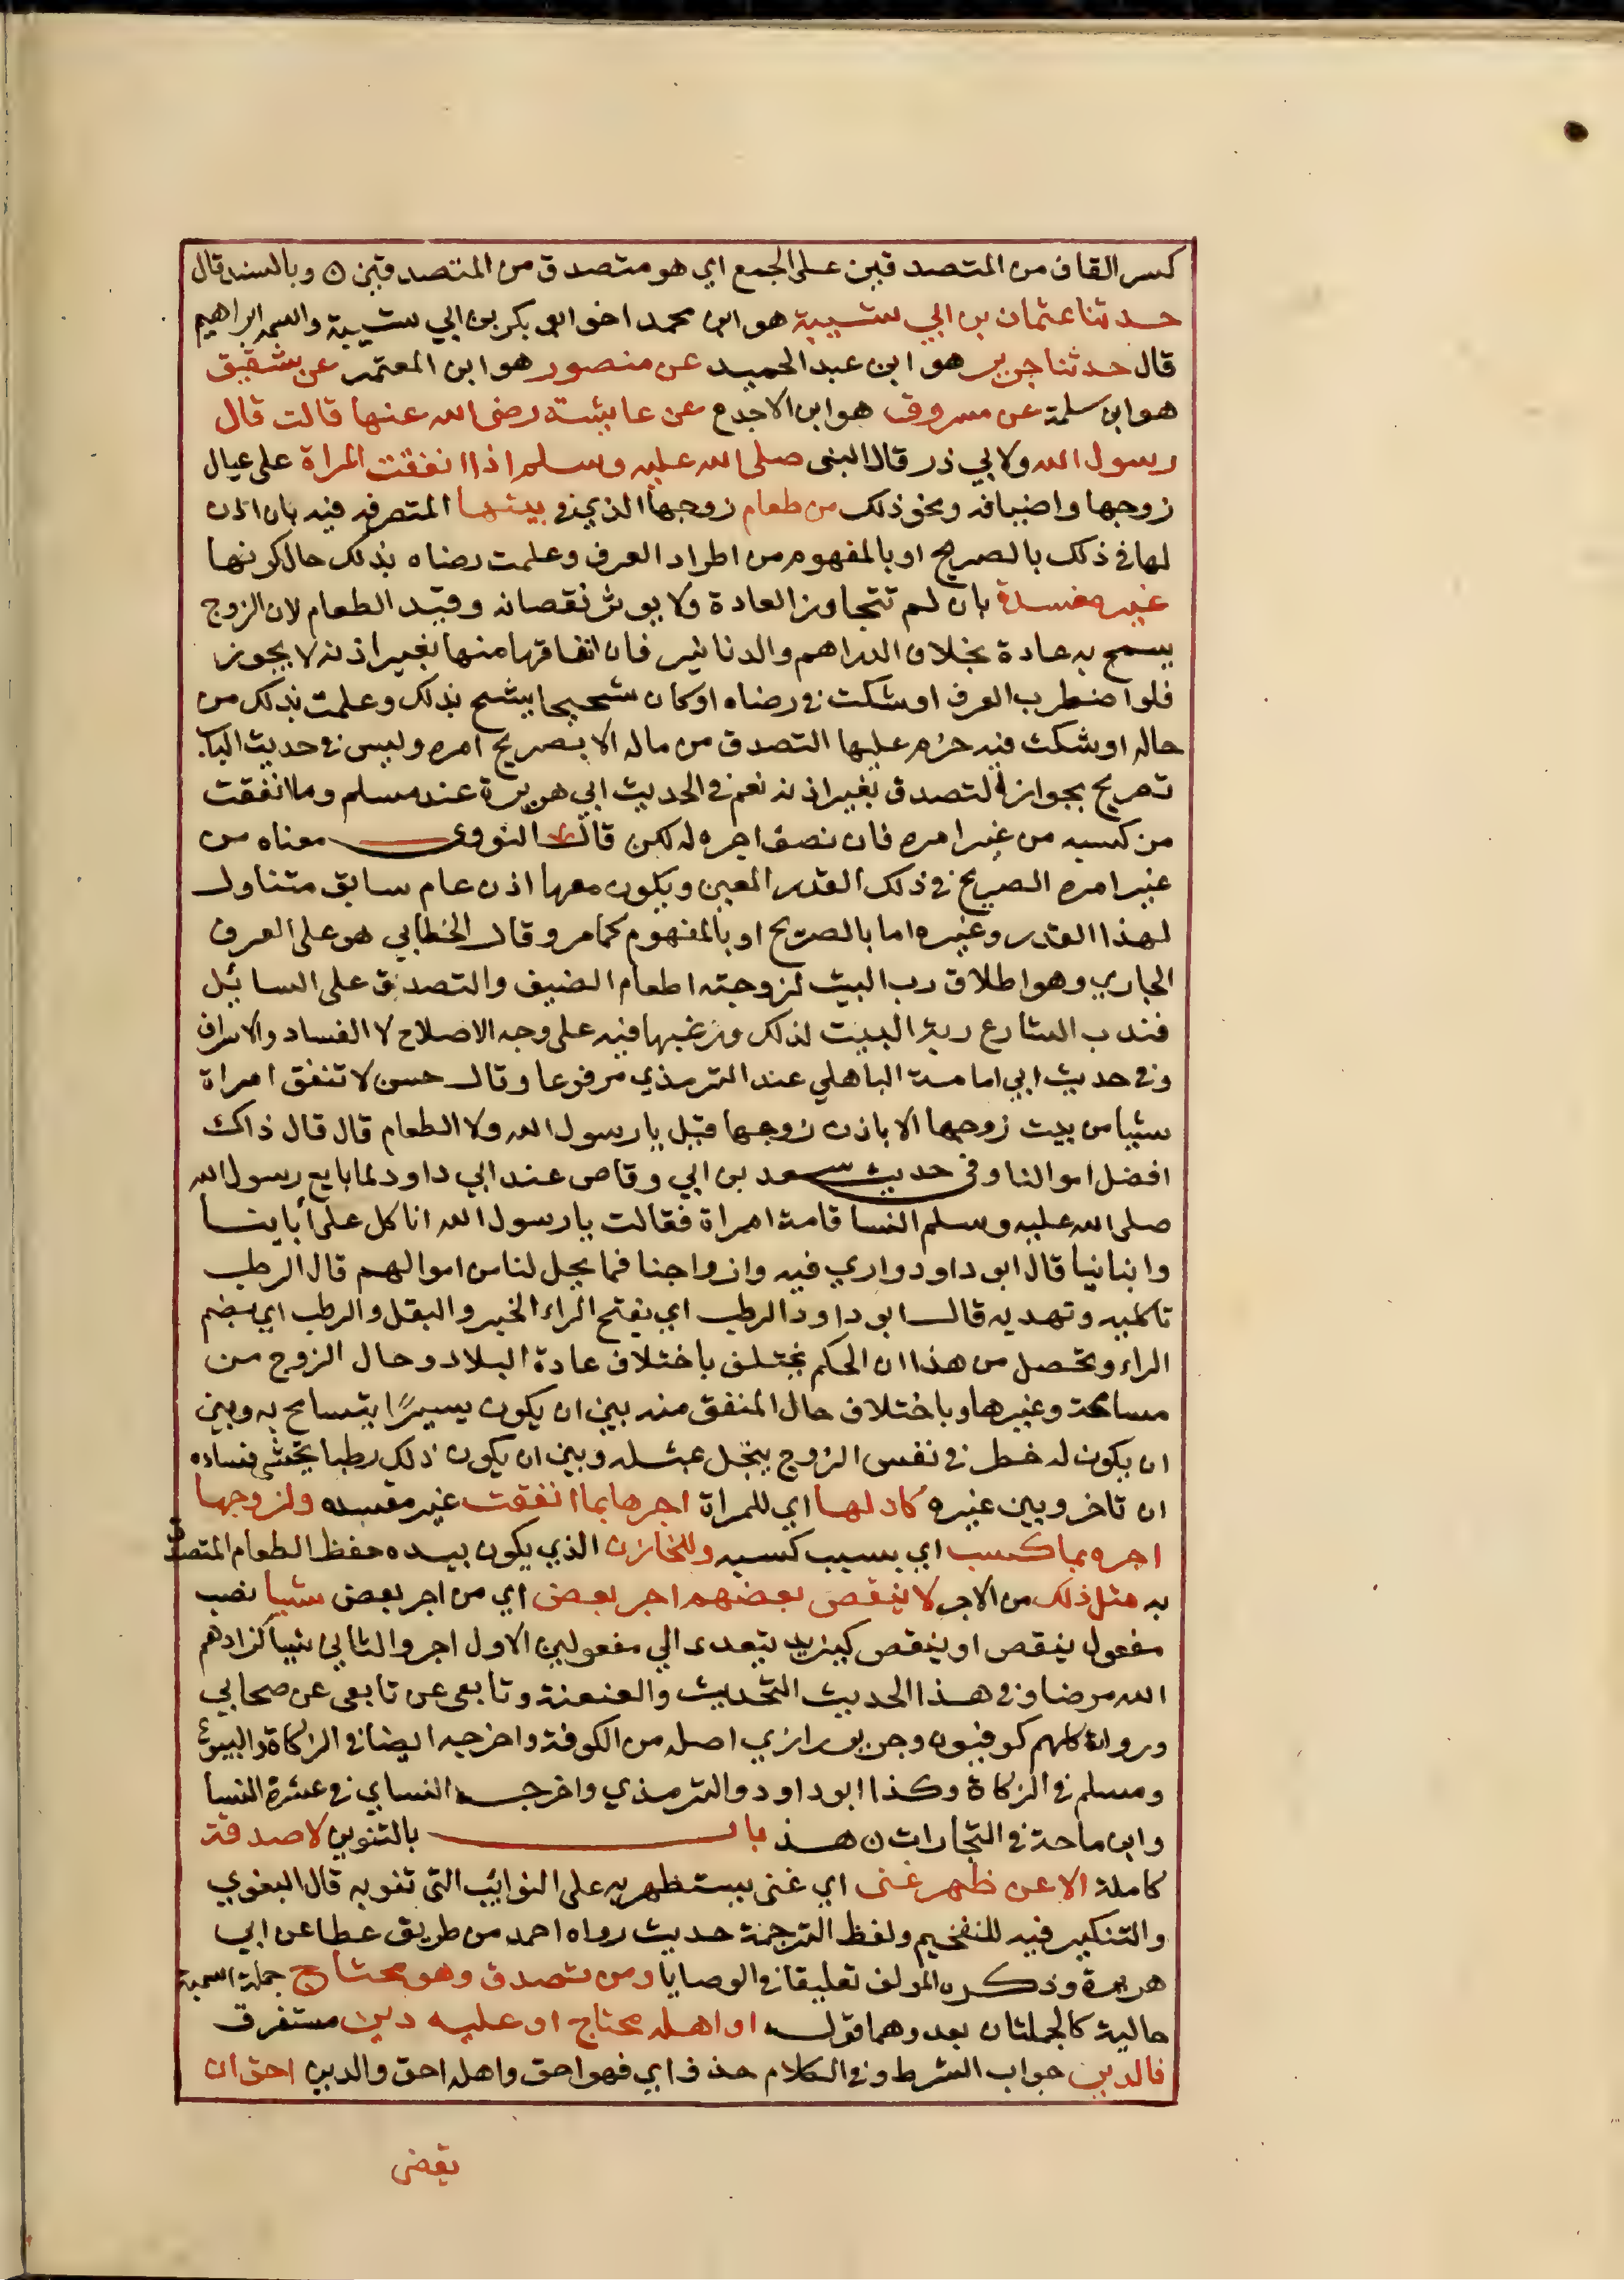 كسر القاف من المتصدقين على الجمع اي هو متصدق من المتصدقين ه وبالسند قال
حدثنا عثمان بن ابي شيبة هو ابن محمد اخو ابي بكر بن ابي شيبة واسمه ابراهيم
قال حدثنا جرير هو ابن عبد الحميد عن منصور هو ابن المعتمر عن شقيق
هو ابن سلمة عن مسروق هو ابن الاجدع عن عايشة رضى الله عنها قالت قال
رسول الله ولابي ذر قال النبى صلى الله عليه وسلم اذا انفقت المراة على عيال
زوجها واضيافه ونحو ذلك من طعام زوجها الذي في بيتها المتصرفه فيه بان اذن
لها في ذلك بالصريح او بالمفهوم من اطراد العرف وعلمت رضاه بذلك حال كونها
غير مفسدة بان لم تتجاوز العادة ولا يوثر نقصانه وقيد الطعام لان الزوج
يسمح به عادة بخلاف الدراهم والدنانير فان انفاقها منها بغير اذنه لا يجوز
فلو اضطرب العرف او شكت في رضاه او كان شحيحا يشح بذلك وعلمت بذلك من
حاله او شكت فيه حرم عليها التصدق من ماله الا بصريح امره وليس في حديث الباب
تصريح بجواز التصدق بغير اذنه نعم في الحديث ابي هريرة عند مسلم وما انفقت
من كسبه من غير امره فان نصف اجره له لكن قال النووى معناه من
غير امره الصريح في ذلك القدر المعين ويكون معها اذن عام سابق متناول
لهذا القدر وغيره اما بالصريح او بالمفهوم كما مر وقال الخطابي هو على العرف
الجاري وهو اطلاق رب البيت لزوجته اطعام الضيف والتصدق على السائيل
فندب الشارع ربة البيت لذلك ورغبها فيه على وجه الاصلاح لا الفساد والاسراف
وفي حديث ابي امامة الباهلي عند الترمذي مرفوعا وقال حسن لا تنفق امراة
شيا من بيت زوجها الا باذن زوجها قيل يا رسول الله ولا الطعام قال قال ذاك
افضل اموالنا وفى حديث سعد بن ابي وقاص عند ابي داود لما بايع رسول الله
صلى الله عليه وسلم النسا قامة امراة فقالت يا رسول الله انا كل على ابائنا
وابنائيا قال ابو داود واري فيه وازواجنا فما يحل لنا من اموالهم قال الرطب
تاكلينه وتهديه قال ابو داود الرطب اي بفتح الراء الخبز والبقل والرطب اي بضم
الراء وتحصل من هذا ان الحكم يختلف باختلاف عادة البلاد وحال الزوج من
مسامحة وغيرها وباختلاف حال المنفق منه بين ان يكون يسيرًا يتسامح به وبين
ان يكون له خطر في نفس الزوج يبخل بمثله وبين ان يكون ذلك رطبا يخشى فساده
ان تاخر وبين غيره كان لها اي للمراة اجرها بما انفقت غير مفسده ولزوجها
اجره بما كسب اي بسبب كسبه وللخازن الذي يكون بيده حفظ الطعام المتصدق
به مثل ذلك من الاجر لا ينقص بعضهم اجر بعض اي من اجر بعض شيا نصب
مفعول ينقص او ينقص كيزيد يتعدى الي مفعولين الاول اجر والثاني شيا كزادهم
الله مرضا وفي هذا الحديث التحديث والعنعنة وتابعى عن تابعى عن صحابي
ورواته كلهم كوفيون وجرير رازي اصله من الكوفة واخرجه ايضا في الزكاة والبيوع
ومسلم في الزكاة وكذا ابو داود والترمذي واخرجه النساي في عشرة النسا
وابن ماجة في التجارات ن هذ باب بالتنوين لا صدقة
كاملة الا عن ظهر غنى اي غنى يستظهر به على النوايب التى تنوبه قال البغوي
والتنكير فيه للتفخيم ولفظ الترجمة حديث رواه احمد من طريق عطا عن ابي
هريرة وذكره المولف تعليقا في الوصايا ومن تصدق وهو محتاج جملة اسمية
حالية كالجملتان بعد وهما قوله او اهله محتاج او عليه دين مستغرق
فالدين جواب الشرط وفي الكلام حذف اي فهو احق واهله احق والدين احق ان
يقضى